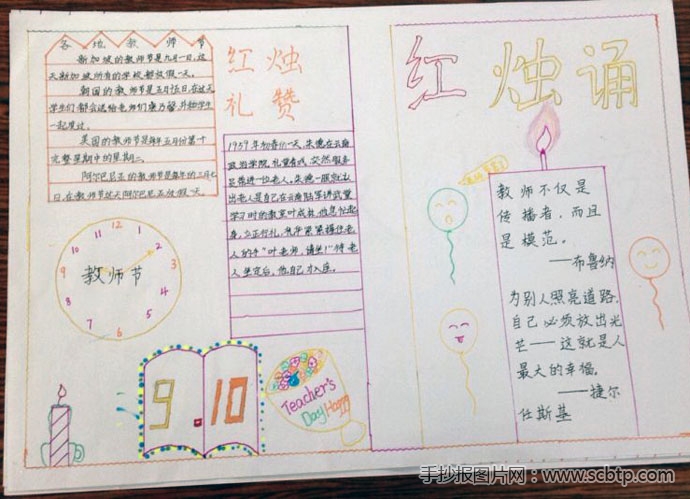 各地教师节
新加坡的教师节是九月一日，这
天新加坡所有的学校都放假一天。
韩国的教师节是五月15日，在这天
学生们都会送给老师们康乃馨，并和学生
一起度过。
美国的教师节是每年五月份第一个
完整星期中的星期二。
阿尔巴尼亚的教师节是每年的三月七
日，在教师节这天阿尔巴尼亚放假一天。
红烛
礼赞
1959年初春的一天，朱德在云南
政治学院礼堂看戏，突然服务
员带进一位老人。朱德一眼就认
出老人是自己在云南陆军讲武堂
学习时的教官叶成林。他急忙起
身，立正行礼，然后紧紧握住老
人的手
老师，请坐！
人坐定后，他自己才入座。
12
1
2
3
4
5
6
7
8
9
10
11
教师节
9.10
Teacher's
Day Happy
红烛诵
教师不仅是
传播者，而且
是模范。
——布鲁纳
为别人照亮道路，
自己必须放出光
芒——这就是人
最大的幸福。
——捷尔
任斯基
手抄报图片网：www.scbtp.com